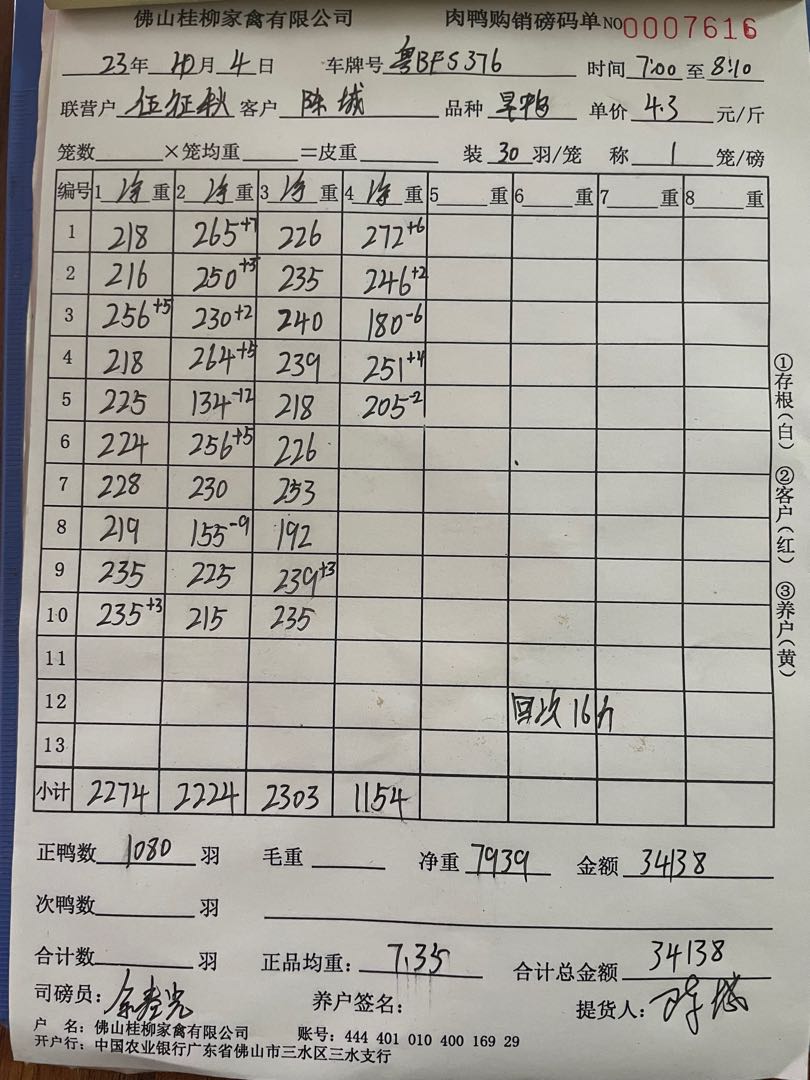 佛山桂柳家禽有限公司 肉鸭购销磅码单 NO 0007616
23年 10月 4日 车牌号 粤BFS376 时间 7:00 至 8:10
联营户 伍征秋 客户 陈城 品种 旱鸭 单价 4.3 元/斤
笼数______×笼均重______=皮重______ 装 30 羽/笼 称 1 笼/磅
编号 1 净 重 2 净 重 3 净 重 4 净 重 5 重 6 重 7 重 8 重
1 218 265+7 226 272+6
2 216 250+3 235 246+2
3 256+5 230+2 240 180-6
4 218 264+5 239 251+4
5 225 134-12 218 205-2
6 224 256+5 226
7 228 230 253
8 219 155-9 192
9 235 225 239+3
10 235+3 215 235
11
12 回次 16斤
13
小计 2274 2224 2303 1154
正鸭数 1080 羽 毛重 净重 7939 金额 34138
次鸭数 羽
合计数 羽 正品均重: 7.35 合计总金额 34138
司磅员: 养户签名: 提货人: 陈城
户 名: 佛山桂柳家禽有限公司 账号: 444 401 010 400 169 29
开户行: 中国农业银行广东省佛山市三水区三水支行
①存根(白) ②客户(红) ③养户(黄)